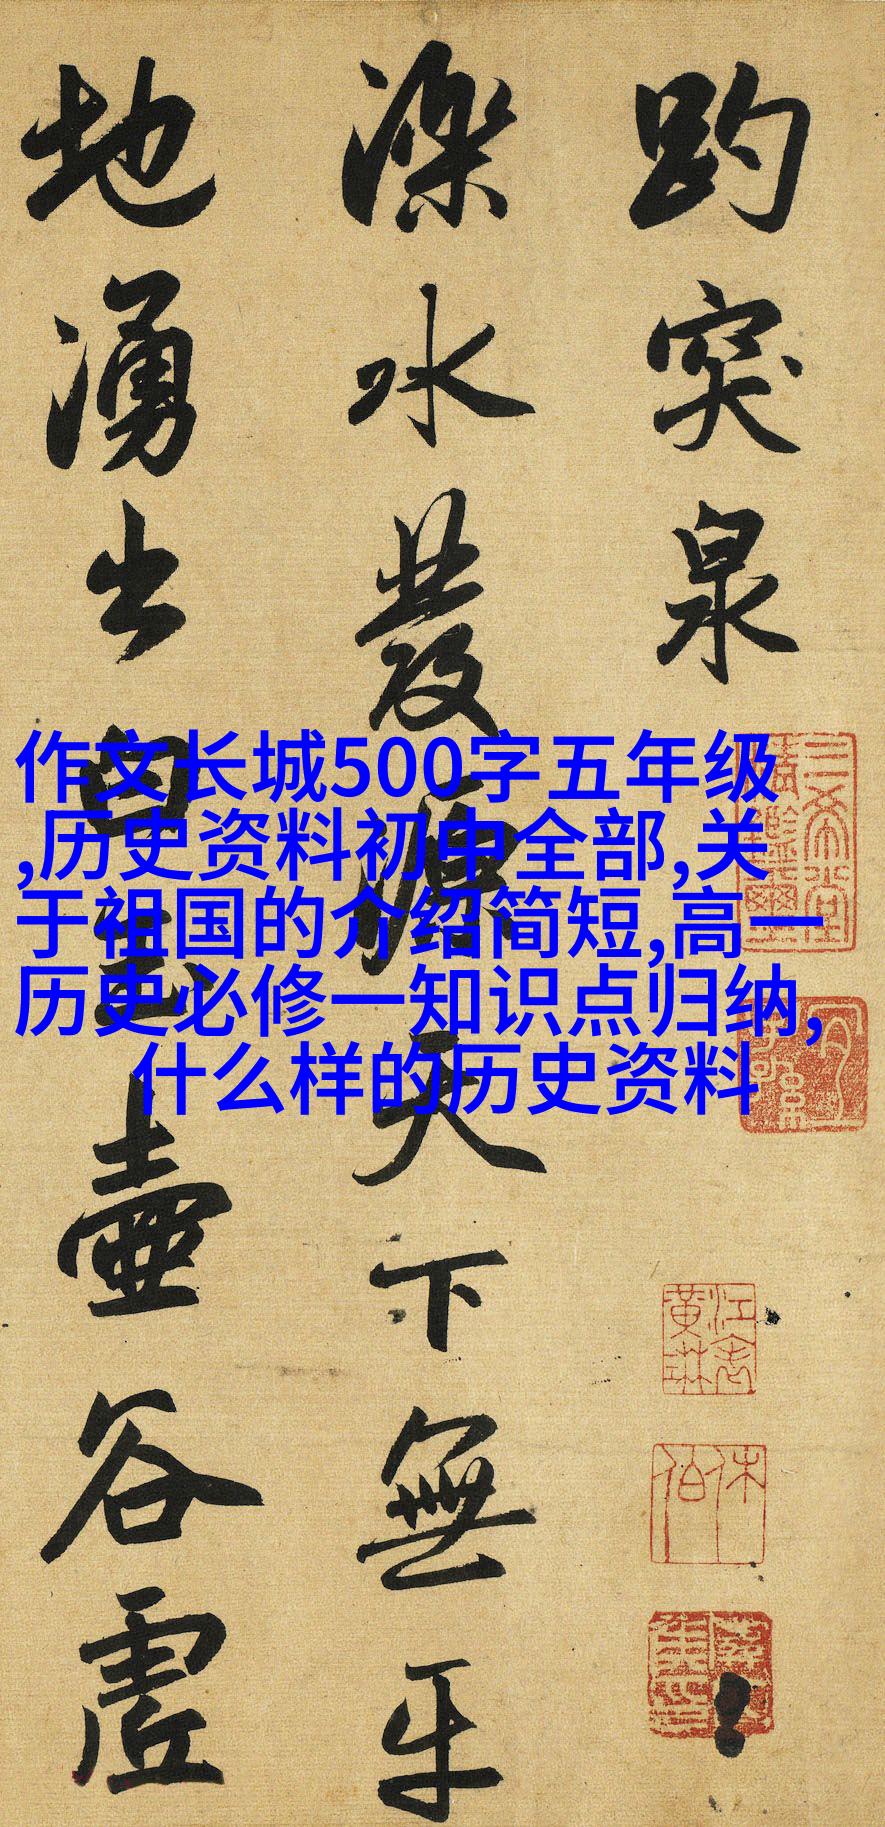 趵突泉
濼水發源天下無平
地湧出白玉壺谷虛
三希堂精鑑璽
宜子孫
休伯
作文长城500字五年级
,历史资料初中全部,关
于祖国的介绍简短,高一
历史必修一知识点归纳,
什么样的历史资料